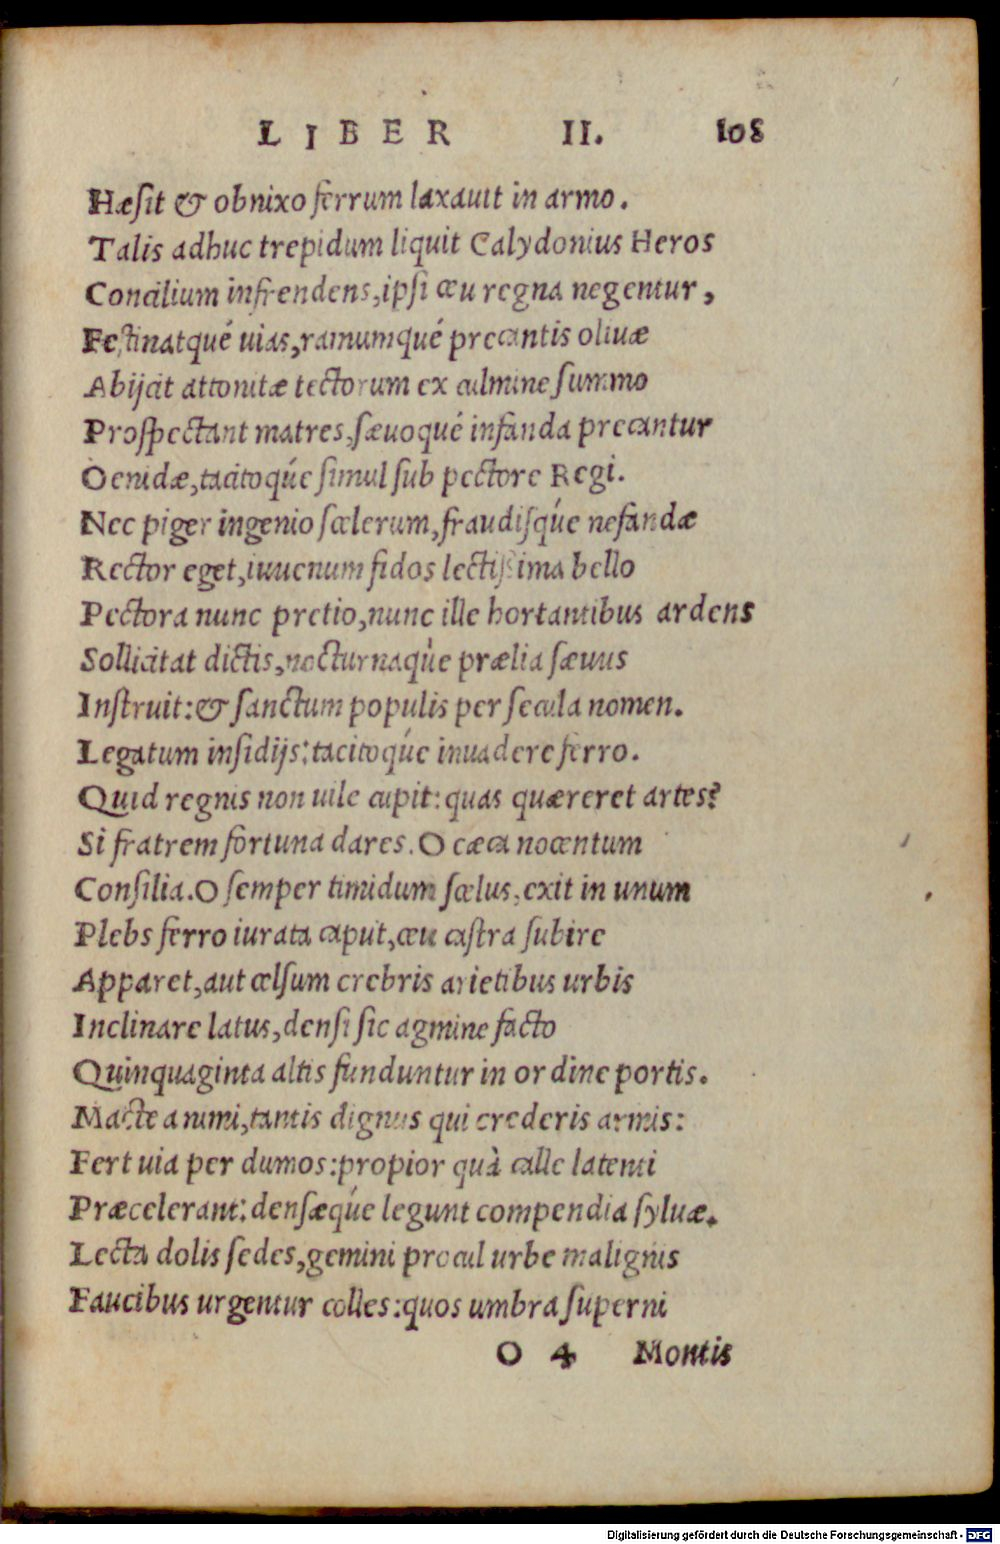 LIBER II. 108
Hæſit & obnixo ferrum laxauit in armo.
Talis adhuc trepidum liquit Calydonius Heros
Concilium infrendens, ipſi ceu regna negentur,
Feſtinatqué uias, ramumqué precantis oliuæ
Abijcit attonitæ tectorum ex culmine ſummo
Proſpectant matres, ſæuoqué infanda precantur
Oenidæ, tacitoqúe ſimul ſub pectore Regi.
Nec piger ingenio ſcelerum, fraudiſqúe nefandæ
Rector eget, iuuenum fidos lectiſsima bello
Pectora nunc pretio, nunc ille hortantibus ardens
Sollicitat dictis, nocturnaqùe prælia ſæuus
Inſtruit: & ſanctum populis per ſecula nomen.
Legatum inſidijs: tacitoqúe inuadere ferro.
Quid regnis non uile cupit: quas quæreret artes?
Si fratrem fortuna dares. O cæca nocentum
Conſilia. O ſemper timidum ſcelus, exit in unum
Plebs ferro iurata caput, ceu caſtra ſubire
Apparet, aut celſum crebris arietibus urbis
Inclinare latus, denſi ſic agmine facto
Quinquaginta altis funduntur in ordine portis.
Macte animi, tantis dignus qui crederis armis:
Fert uia per dumos: propior quà calle latenti
Præcelerant: denſæqúe legunt compendia ſyluæ.
Lecta dolis ſedes, gemini procul urbe malignis
Faucibus urgentur colles: quos umbra ſuperni
O 4 Montis
Digitalisierung gefördert durch die Deutsche Forschungsgemeinschaft - DFG